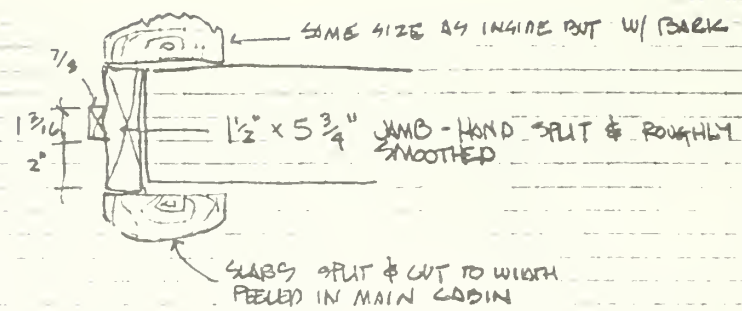 SAME SIZE AS INSIDE BUT W/ BARK
7/8
1 3/16
2"
1 1/2" x 5 3/4" JAMB - HAND SPLIT & ROUGHLY
SMOOTHED
SLABS SPLIT & CUT TO WIDTH
PEELED IN MAIN CABIN